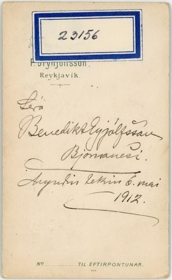 23156
P. Brynjólfsson
Reykjavík
Séra
Benedikt Eyjólfsson
Bjarnanesi.
Myndin tekin 6. mai
1912.
No
TIL EFTIRPÖNTUNAR.